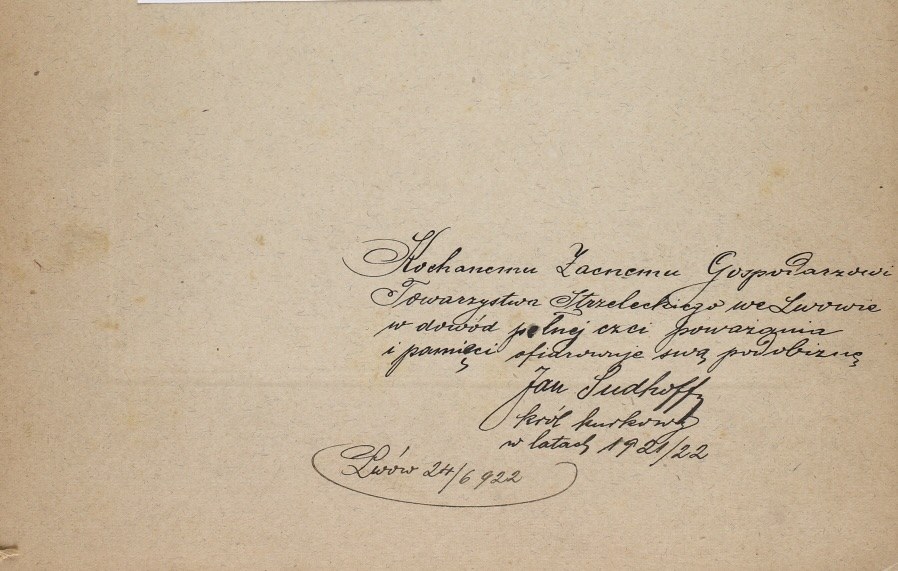 Kochanemu Zacnemu Gospodarzowi
Towarzystwa Strzeleckiego we Lwowie
w dowód pełnej czci poważania
i pamięci ofiarowuje swą podobiznę
Jan Sudhoff
król kurkowy
w latach 1921/22
Lwów 24/6 922